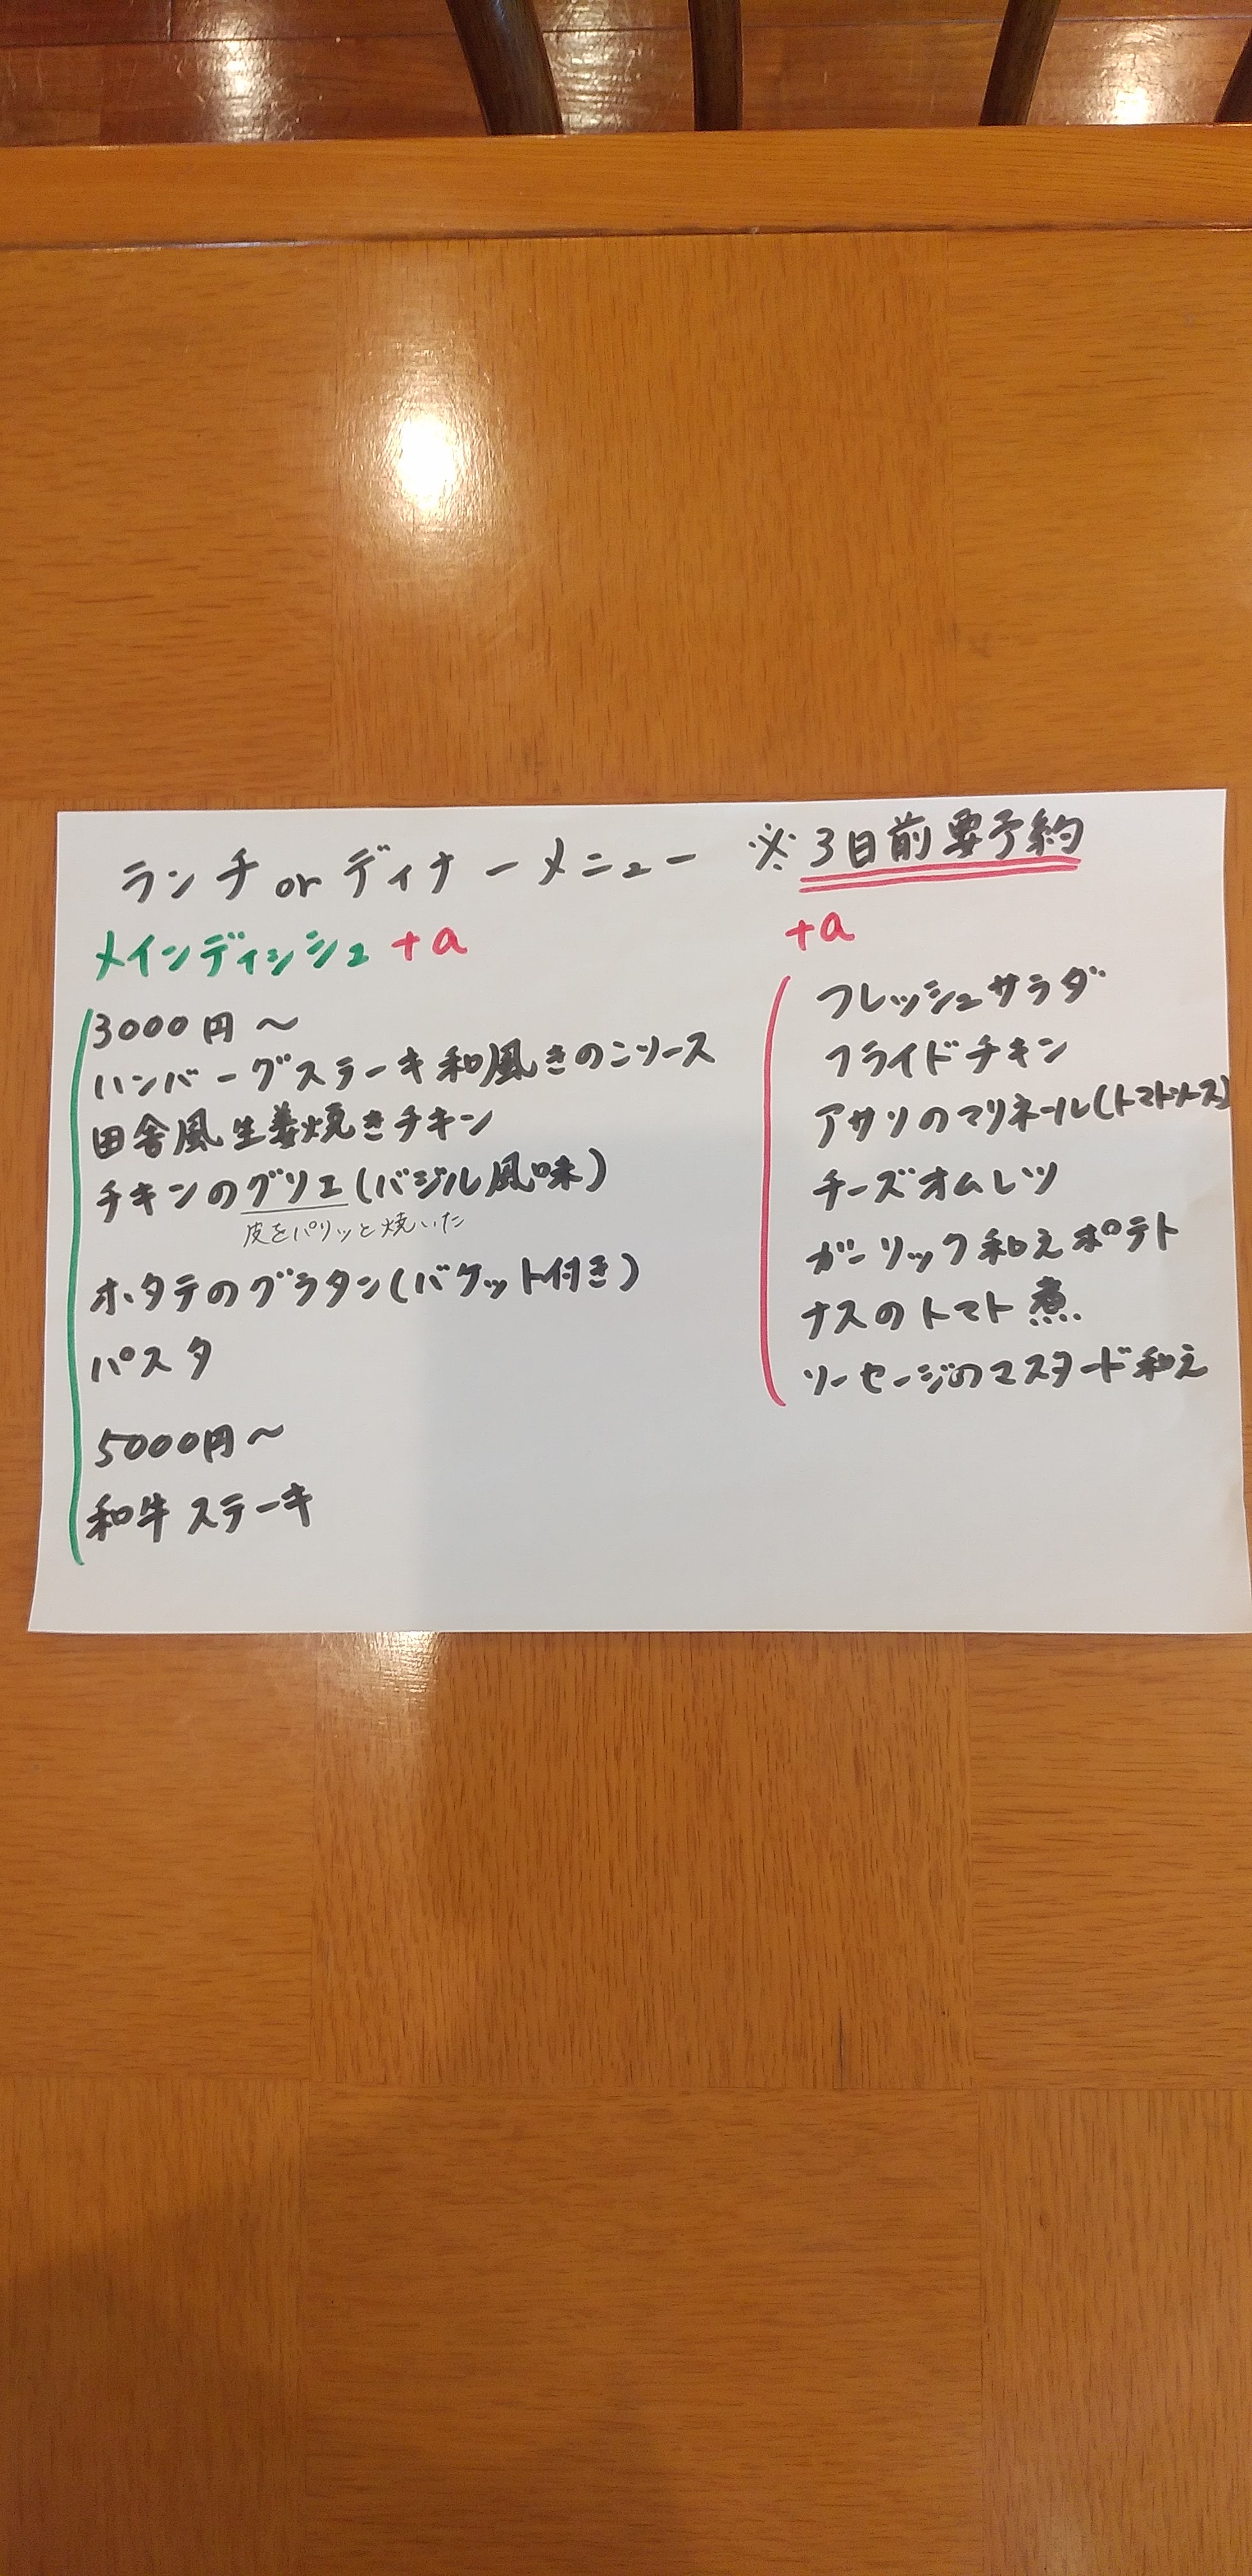 ランチorディナーメニュー ※3日前要予約
メインディッシュ +a
3000円〜
ハンバーグステーキ和風きのこソース
田舎風生姜焼きチキン
チキンのグリエ(バジル風味)
皮をパリッと焼いた
ホタテのグラタン(バケット付き)
パスタ
5000円〜
和牛ステーキ
+a
フレッシュサラダ
フライドチキン
アサリのマリネール(トマトソース)
チーズオムレツ
ガーリック和えポテト
ナスのトマト煮
ソーセージのマスタード和え